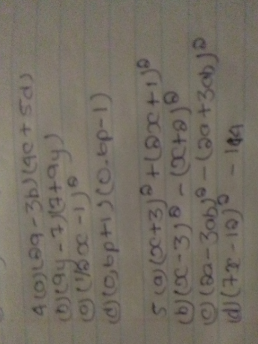 4(a)(2a-3b)(4c+5d)
(b)(4y-7)(7+9y)
(c)(1/2x-1)²
(d)(0,6p+1)(0,6p-1)
5(a)(x+3)²+(2x+1)²
(b)(x-3)²-(x+2)²
(c)(2a-3ab)²-(2a+3ab)²
(d)(7x-12)²-144